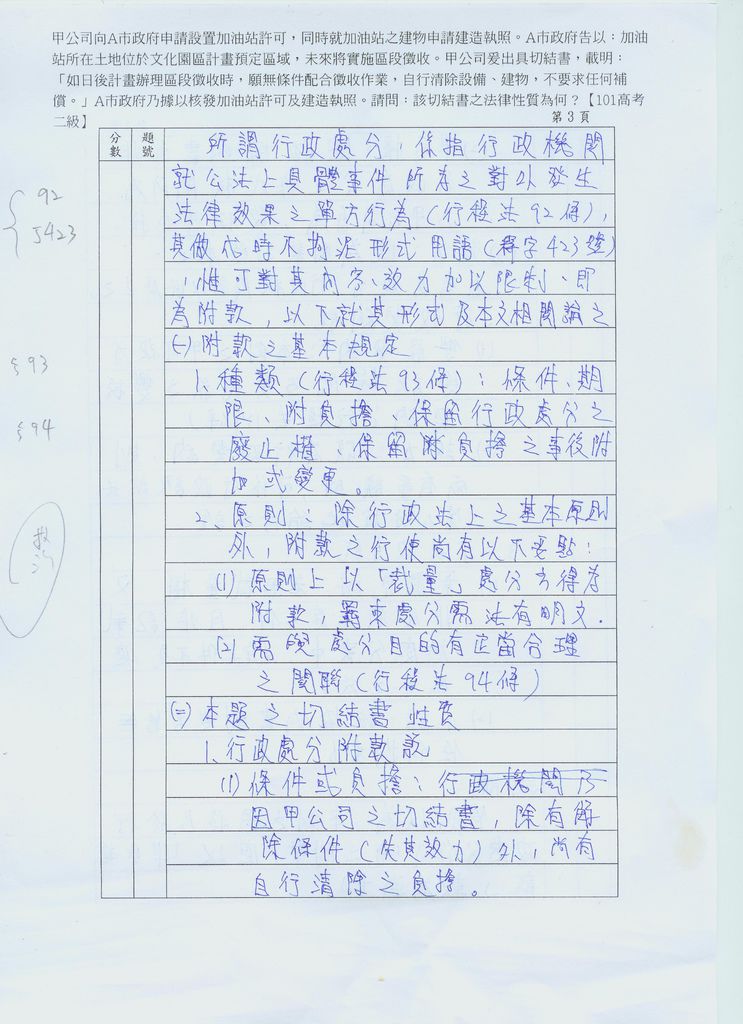 甲公司向A市政府申請設置加油站許可，同時就加油站之建物申請建造執照。A市政府告以：加油
站所在土地位於文化園區計畫預定區域，未來將實施區段徵收。甲公司爰出具切結書，載明：
「如日後計畫辦理區段徵收時，願無條件配合徵收作業，自行清除設備、建物，不要求任何補
償。」A市政府乃據以核發加油站許可及建造執照。請問：該切結書之法律性質為何？【101高考
二級】
第3頁
分數
題號
所謂行政處分，係指行政機關
就公法上具體事件所為之對外發生
法律效果之單方行為（行程法92條），
其做成時不拘泥形式用語（釋字423號）
，惟可對其內容、效力加以限制、即
為附款，以下就其形式及本文相關論之
(一)附款之基本規定
1、種類（行程法93條）：條件、期
限、附負擔、保留行政處分之
廢止權、保留附負擔之事後附
加或變更。
2、原則：除行政法上之基本原則
外，附款之行使尚有以下要點：
(1)原則上以「裁量」處分方得為
附款，羈束處分需法有明文.
(2)需與處分目的有正當合理
之關聯（行程法94條）
(二)本題之切結書性質
1、行政處分附款說
(1)條件或負擔：行政機關乃
因甲公司之切結書，除有解
除條件（失其效力）外，尚有
自行清除之負擔。
92
J423
§93
§94